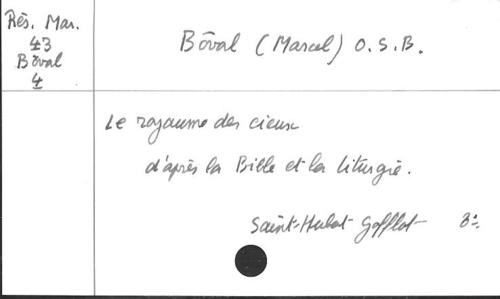 Rés. Mar.
43
Bôval
4
Bôval (Marcel) O.S.B.
Le royaume des cieux
d'après la Bible et la liturgie.
Saint-Hubert Gofflot 8°